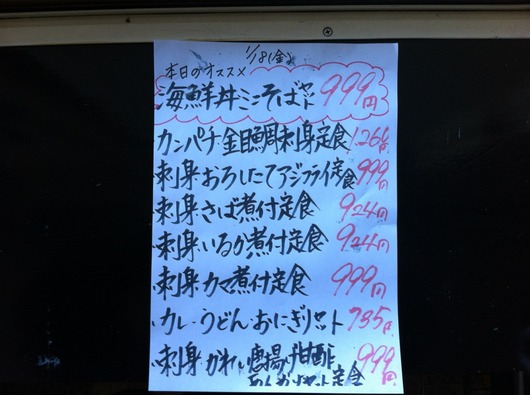 1/18(金)
本日のオススメ
海鮮丼ミニそばセット 999円
カンパチ・金目鯛刺身定食 1.260円
刺身・おろしたてアジフライ定食 999円
刺身・さば煮付定食 924円
刺身・いるか煮付定食 924円
刺身・カマ煮付定食 999円
カレーうどん・おにぎりセット 735円
刺身・かれい唐揚げ甘酢 999円
あんかけセット定食